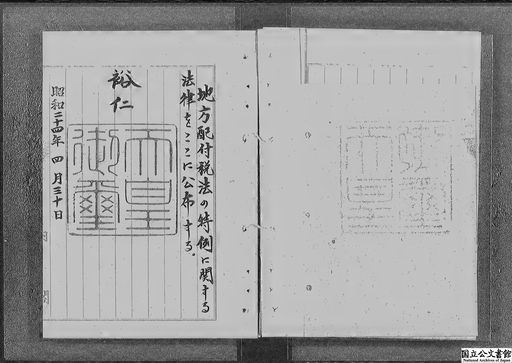 地方配付税法の特例に関する
法律をここに公布する。
裕仁
天皇
御璽
昭和二十四年四月三十日
国立公文書館
National Archives of Japan